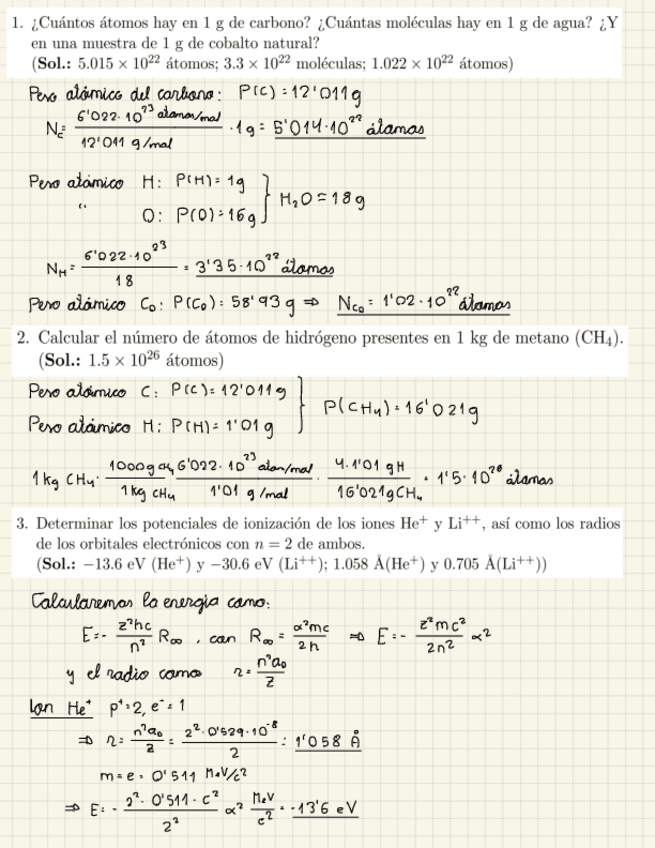 1. ¿Cuántos átomos hay en 1 g de carbono? ¿Cuántas moléculas hay en 1 g de agua? ¿Y
en una muestra de 1 g de cobalto natural?
(Sol.: 5.015 × 10²² átomos; 3.3 × 10²² moléculas; 1.022 × 10²² átomos)
Peso atómico del carbono: P(C) = 12'011g
N_C = (6'022·10²³ átomos/mol)/(12'011 g/mol) · 1g = 5'014·10²² átomos
Peso atómico H: P(H) = 1g
" O: P(O) = 16g } H₂O = 18g
N_H = (6'022·10²³)/18 = 3'35·10²² átomos
Peso atómico Co: P(Co) = 58'93 g ⇒ N_Co = 1'02·10²² átomos
2. Calcular el número de átomos de hidrógeno presentes en 1 kg de metano (CH₄).
(Sol.: 1.5 × 10²⁶ átomos)
Peso atómico C: P(C) = 12'011g
Peso atómico H: P(H) = 1'01g } P(CH₄) = 16'021g
1 kg CH₄ · (1000g CH₄)/(1kg CH₄) · (6'022·10²³ atom/mol)/(1'01 g/mol) · (4·1'01 gH)/(16'021gCH₄) = 1'5·10²⁶ átomos
3. Determinar los potenciales de ionización de los iones He⁺ y Li⁺⁺, así como los radios
de los orbitales electrónicos con n = 2 de ambos.
(Sol.: −13.6 eV (He⁺) y −30.6 eV (Li⁺⁺); 1.058 Å(He⁺) y 0.705 Å(Li⁺⁺))
Calcularemos la energía como:
E = - (z²hc/n²) R∞, con R∞ = α²mc/2h ⇒ E = - (z²mc²/2n²) α²
y el radio como r = n²a₀/z
Ion He⁺ p⁺=2, e⁻=1
⇒ r = n²a₀/z = (2²·0'529·10⁻⁸)/2 = 1'058 Å
m=e = 0'511 MeV/c²
⇒ E = - (2²·0'511·c²)/2² α² MeV/c² = -13'6 eV